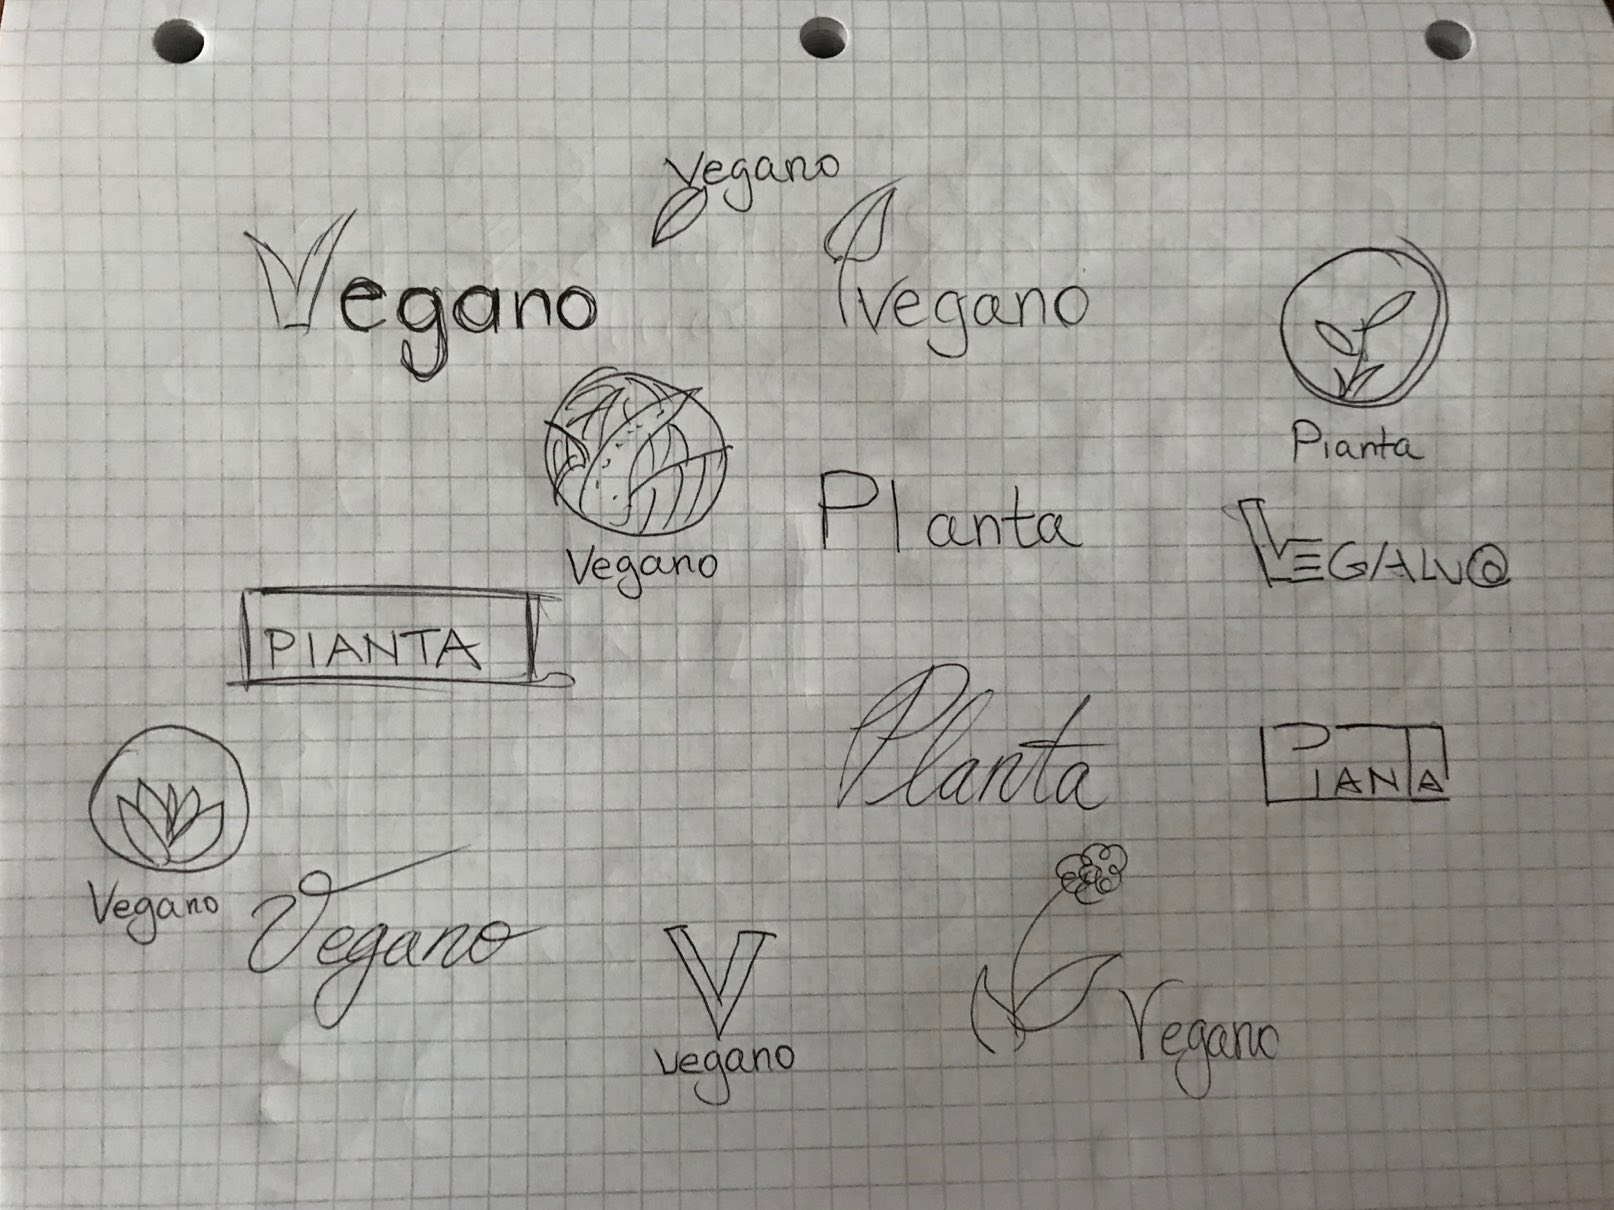 Vegano
Vegano
vegano
Pianta
Planta
Vegano
VEGANO
PIANTA
Planta
PIANTA
Vegano
Vegano
Vegano
Vegano